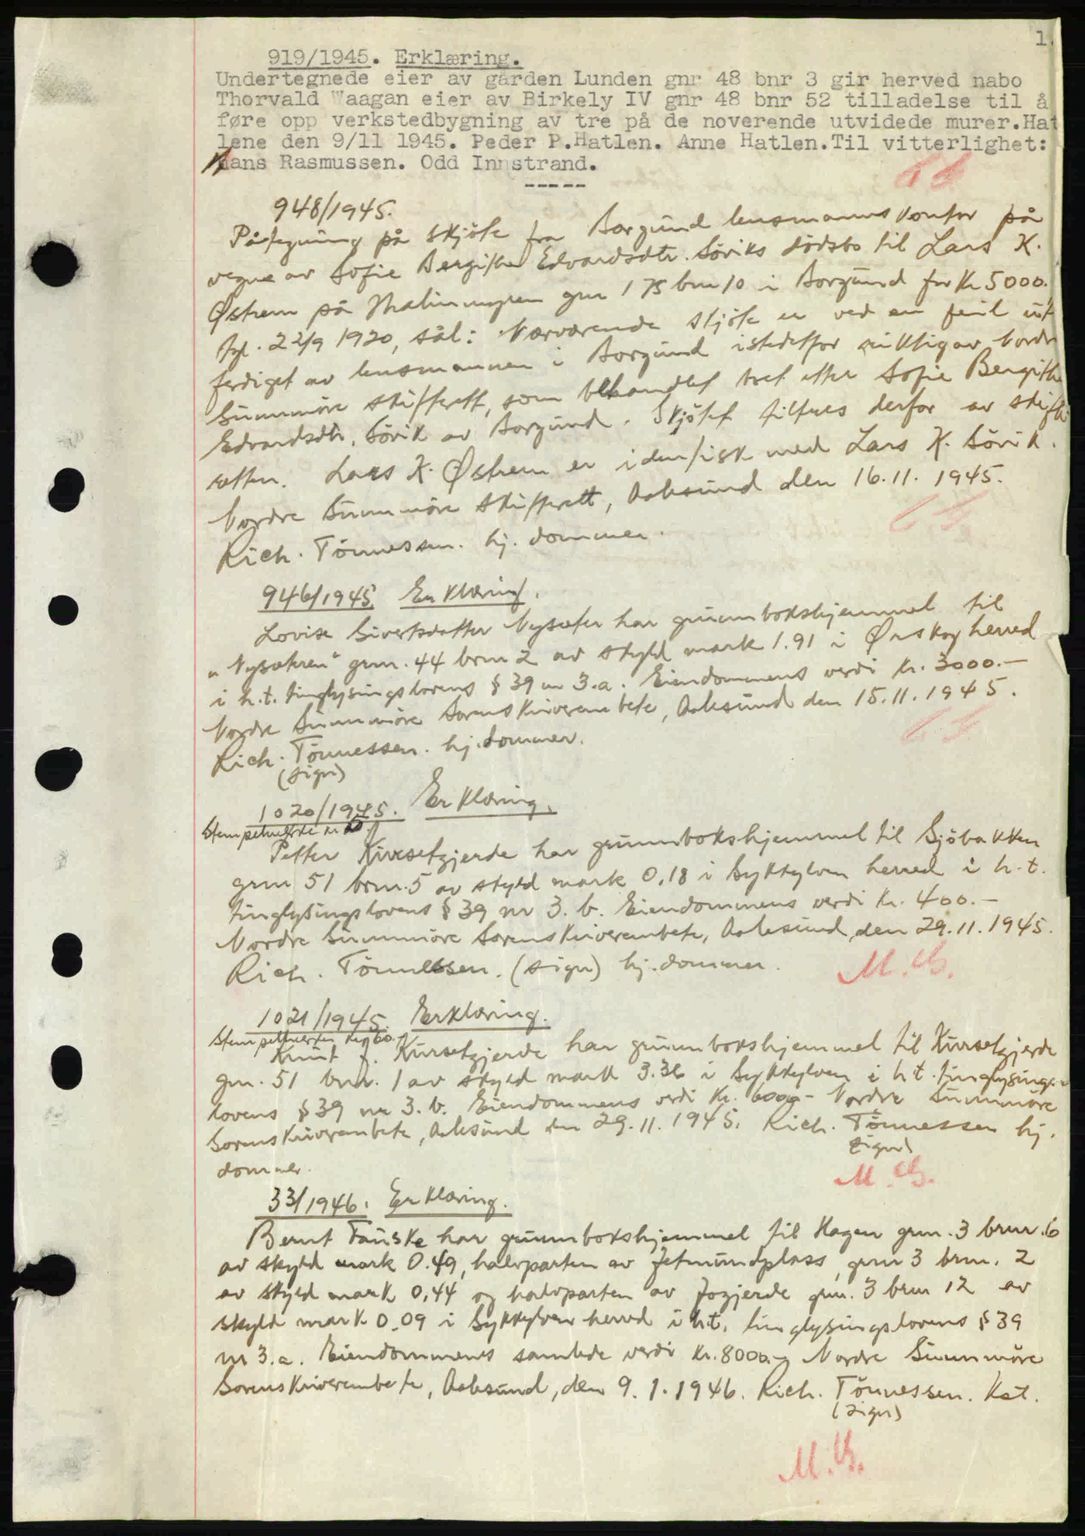 1.
919/1945. Erklæring.
Undertegnede eier av gården Lunden gnr 48 bnr 3 gir herved nabo
Thorvald Waagan eier av Birkely IV gnr 48 bnr 52 tilladelse til å
føre opp verkstedbygning av tre på de noverende utvidede murer.Hat
lene den 9/11 1945. Peder P.Hatlen. Anne Hatlen.Til vitterlighet:
Hans Rasmussen. Odd Innstrand.
-----
948/1945.
Påtegning på skjöte fra Borgund lensmannskontor på
vegne av Sofie Bergithe Edvardsdtr. Söviks dödsbo til Lars K.
Østrem på gnr 175 bnr 10 i Borgund for kr 5000.
tgl. 22/9 1920, sål: Nærværende skjöte er ved en feil ut
ferdiget av lensmannen i Borgund istedetfor riktig av Nordre
Sunnmöre skifterett, som behandlet boet etter Sofie Bergithe
Edvardsdtr. Sövik av Borgund. Skjötet tiltres derfor av skifte
retten. Lars K. Østrem er identisk med Lars K. Sövik.
Nordre Sunnmöre skifterett, Aalesund den 16.11.1945.
Rich. Tönnessen. hj. dommer.
946/1945 Erklæring.
Lovise Sivertsdatter Nysæter har grunnbokshjemmel til
"Nysætren" grnr. 44 brnr 2 av skyld mark 1.91 i Ørskog herred
i h.t. tinglysingslovens § 39 nr 3.a. Eiendommens verdi kr. 3000.-
Nordre Sunnmöre Sorenskriverembete, Aalesund den 15.11.1945.
Rich. Tönnessen. hj. dommer.
(sign)
1020/1945. Erklæring.
Petter Kursetgjerde har grunnbokshjemmel til Sjöbakken
grnr 51 brnr. 5 av skyld mark 0.18 i Sykkylven herred i h.t.
tinglysingslovens § 39 nr 3. b. Eiendommens verdi kr. 400.-
Nordre Sunnmöre Sorenskriverembete, Aalesund, den 29.11.1945.
Rich. Tönnessen. (sign) hj. dommer.
M.B.
1021/1945. Erklæring.
Knut J. Kursetgjerde har grunnbokshjemmel til Kursetgjerde
gnr. 51 bnr. 1 av skyld mark 3.36 i Sykkylven i h.t. tinglysings-
lovens § 39 nr 3. b. Eiendommens verdi Kr. 6000- Nordre Sunnmöre
Sorenskriverembete, Aalesund den 29.11.1945. Rich. Tönnessen hj.
(sign)
dommer.
M.B.
33/1946. Erklæring.
Bernt Fauske har grunnbokshjemmel til Hagen grnr. 3 brnr. 6
av skyld mark 0.49, halvparten av Jetmundplass, grnr 3 brnr. 2
av skyld mark 0,44 og halvparten av gnr. 3 brnr 12 av
skyld mark 0.09 i Sykkylven herred i h.t. tinglysingslovens § 39
nr 3.a. Eiendommens samlede verdi kr. 8000.- Nordre Sunnmöre
Sorenskriverembete, Aalesund, den 9.1.1946. Rich. Tönnessen. Kst.
(sign)
M.B.